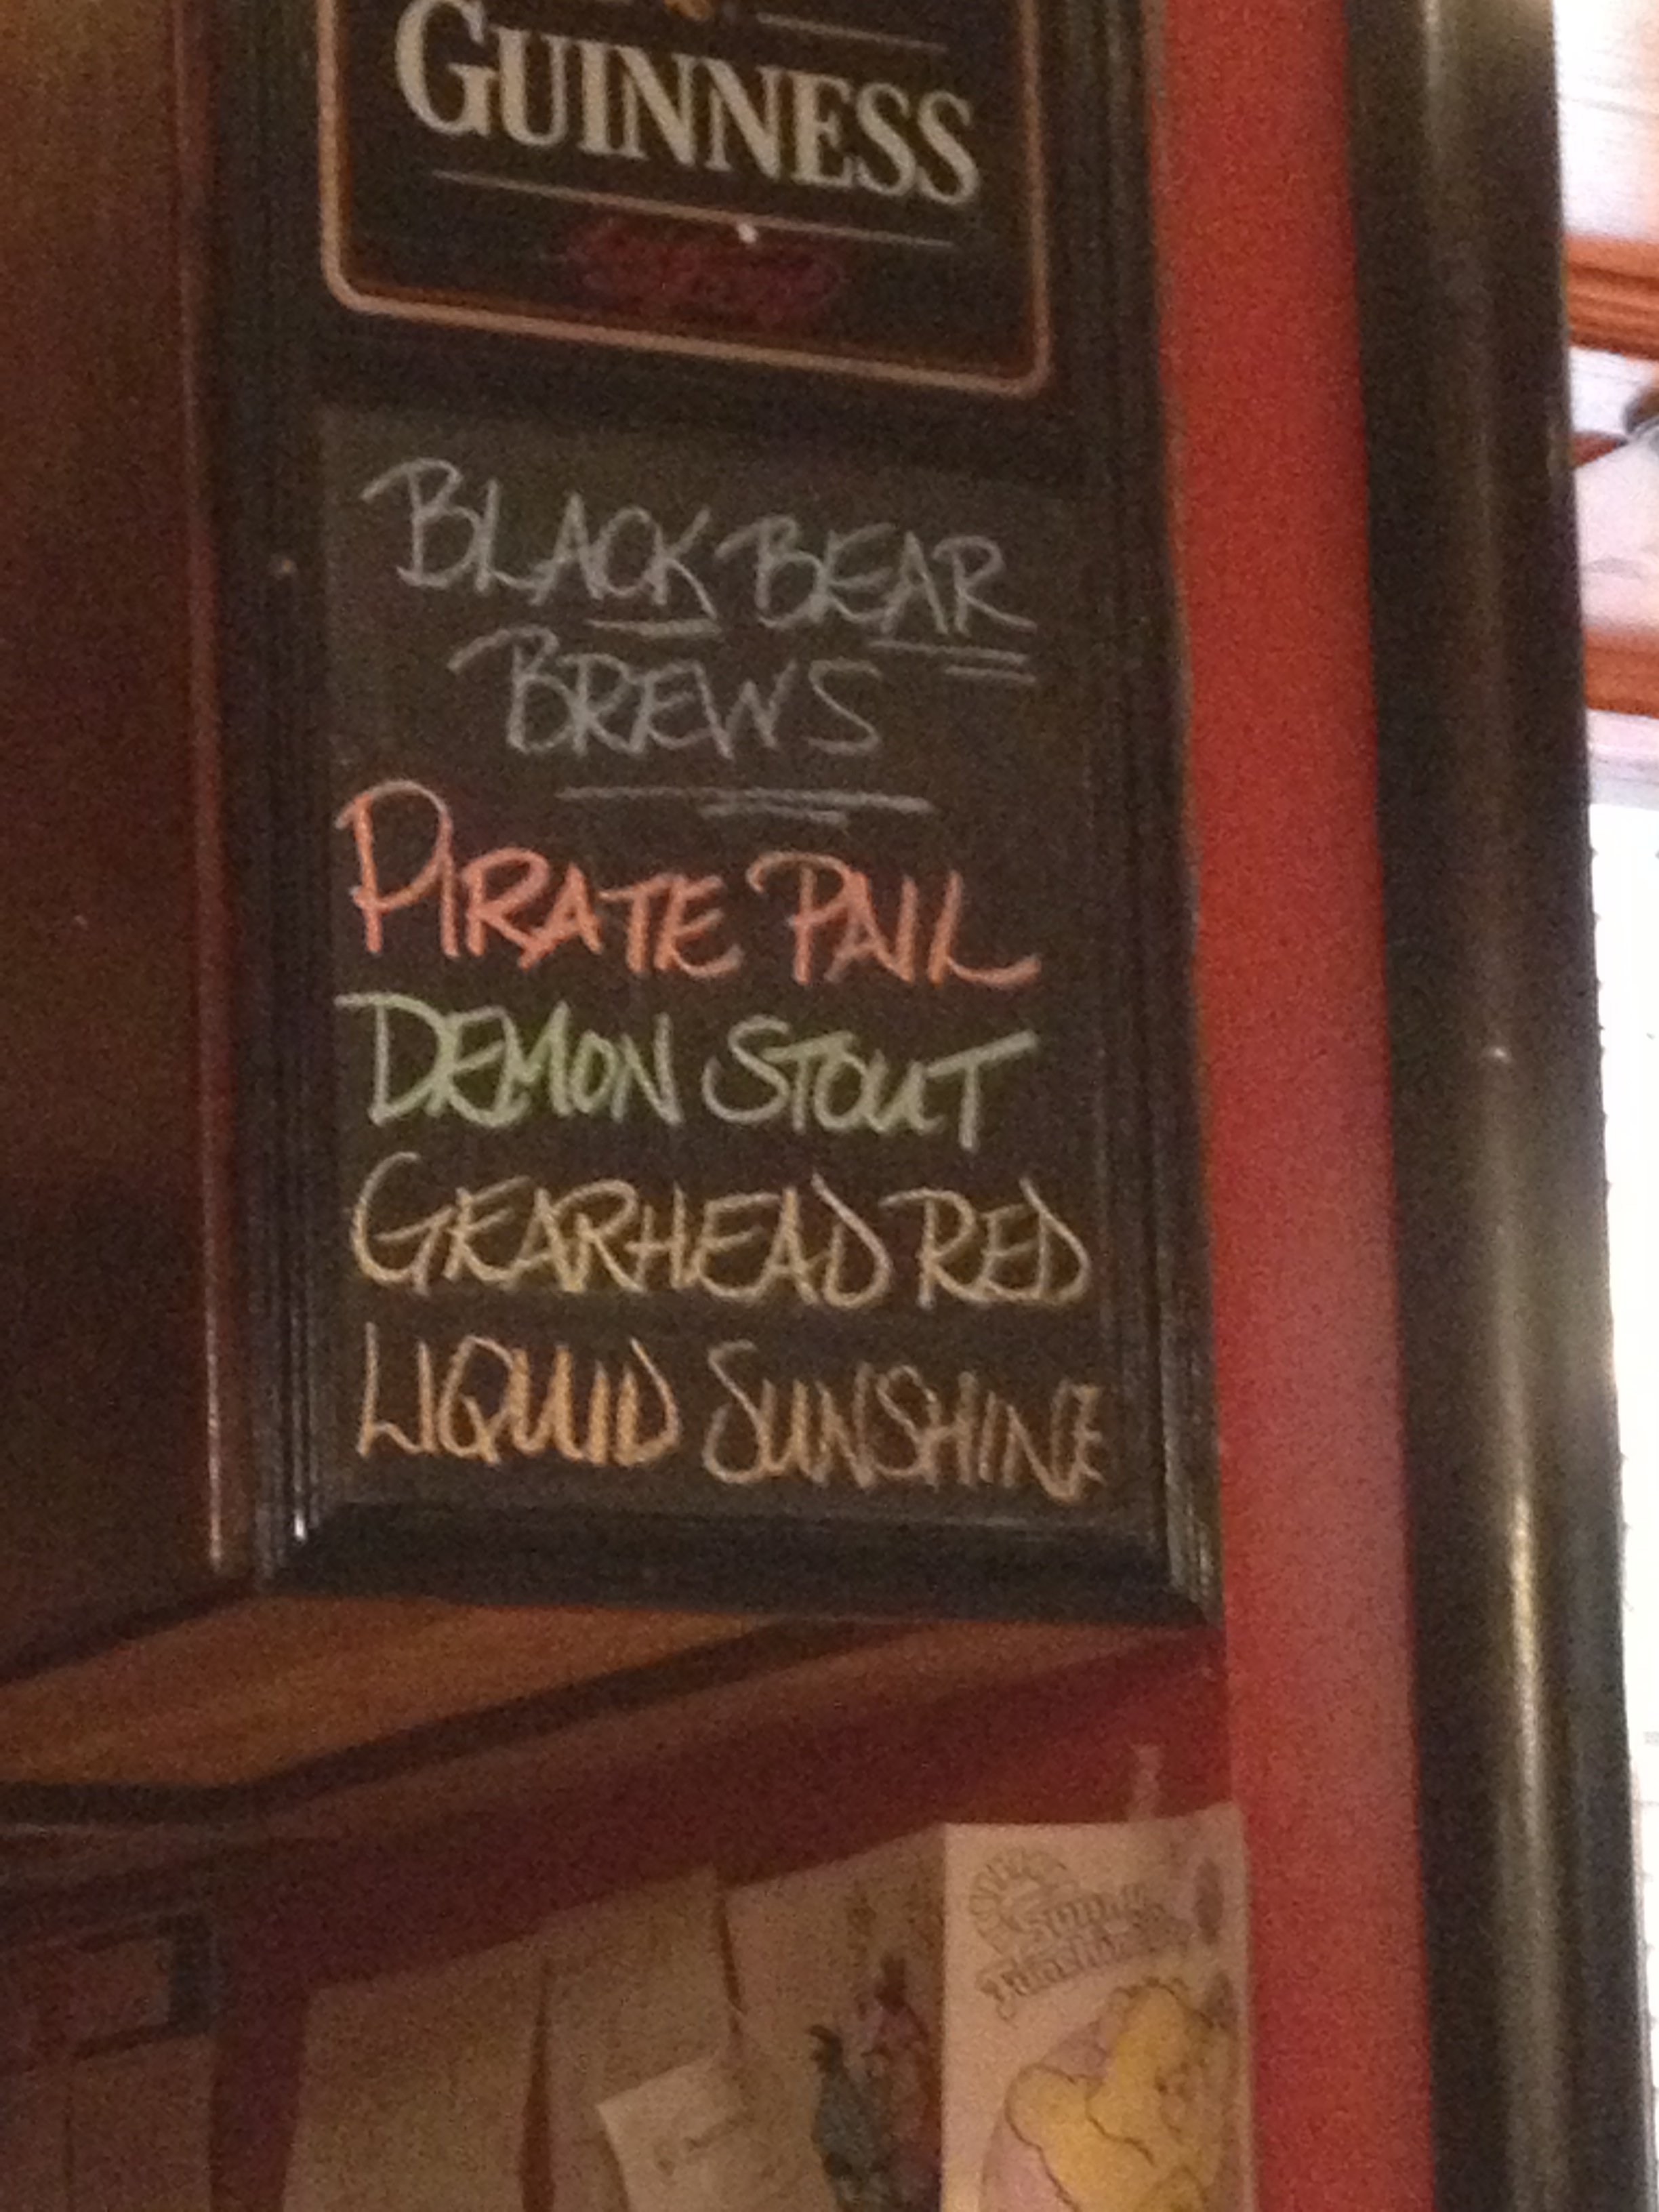 GUINNESS
BLACK BEAR
BREWS
PIRATE PAIL
DEMON STOUT
GEARHEAD RED
LIQUID SUNSHINE